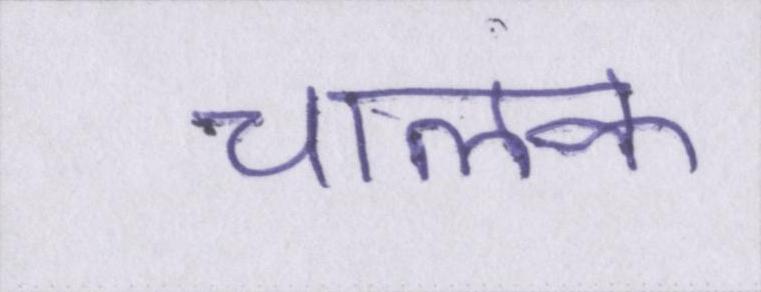 चालक